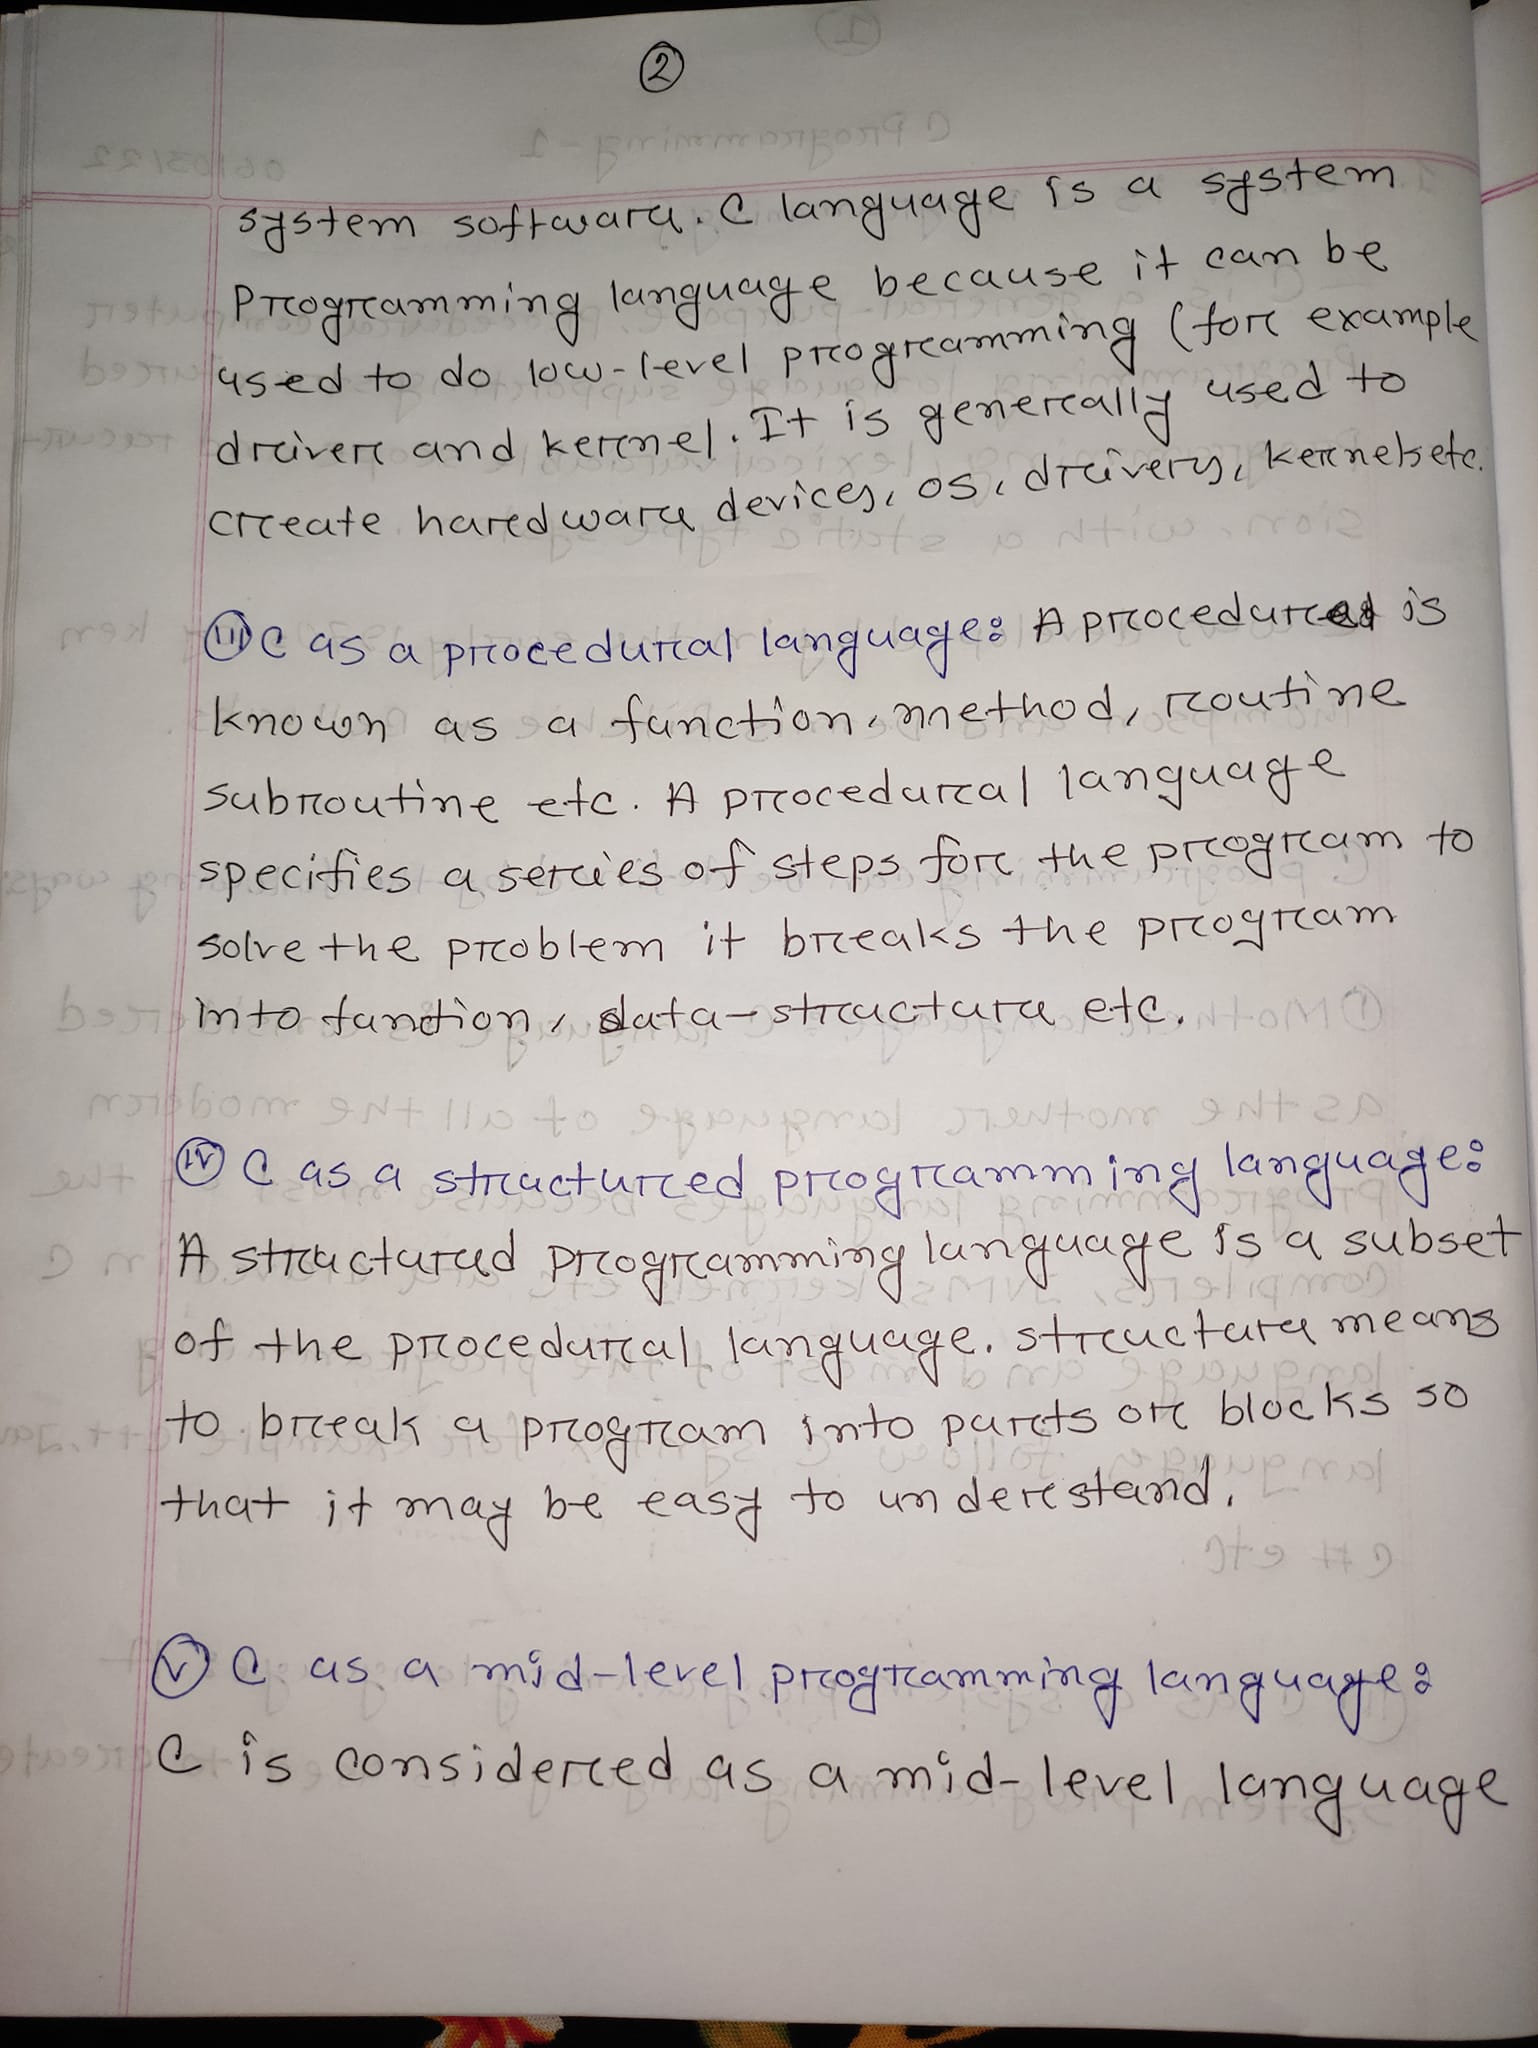 2
system software. C language is a system
Programming language because it can be
used to do low-level programming (for example
driver and kernel. It is generally used to
create hardware devices, os, drivers, kernels etc.
(iii) C as a procedural language: A procedured is
known as a function, method, routine
subroutine etc. A procedural language
specifies a series of steps for the program to
solve the problem it breaks the program
into function, data-structure etc.
(iv) C as a structured programming language:
A structured programming language is a subset
of the procedural language. structure means
to break a program into parts or blocks so
that it may be easy to understand.
(v) C as a mid-level programming language:
C is considered as a mid-level language